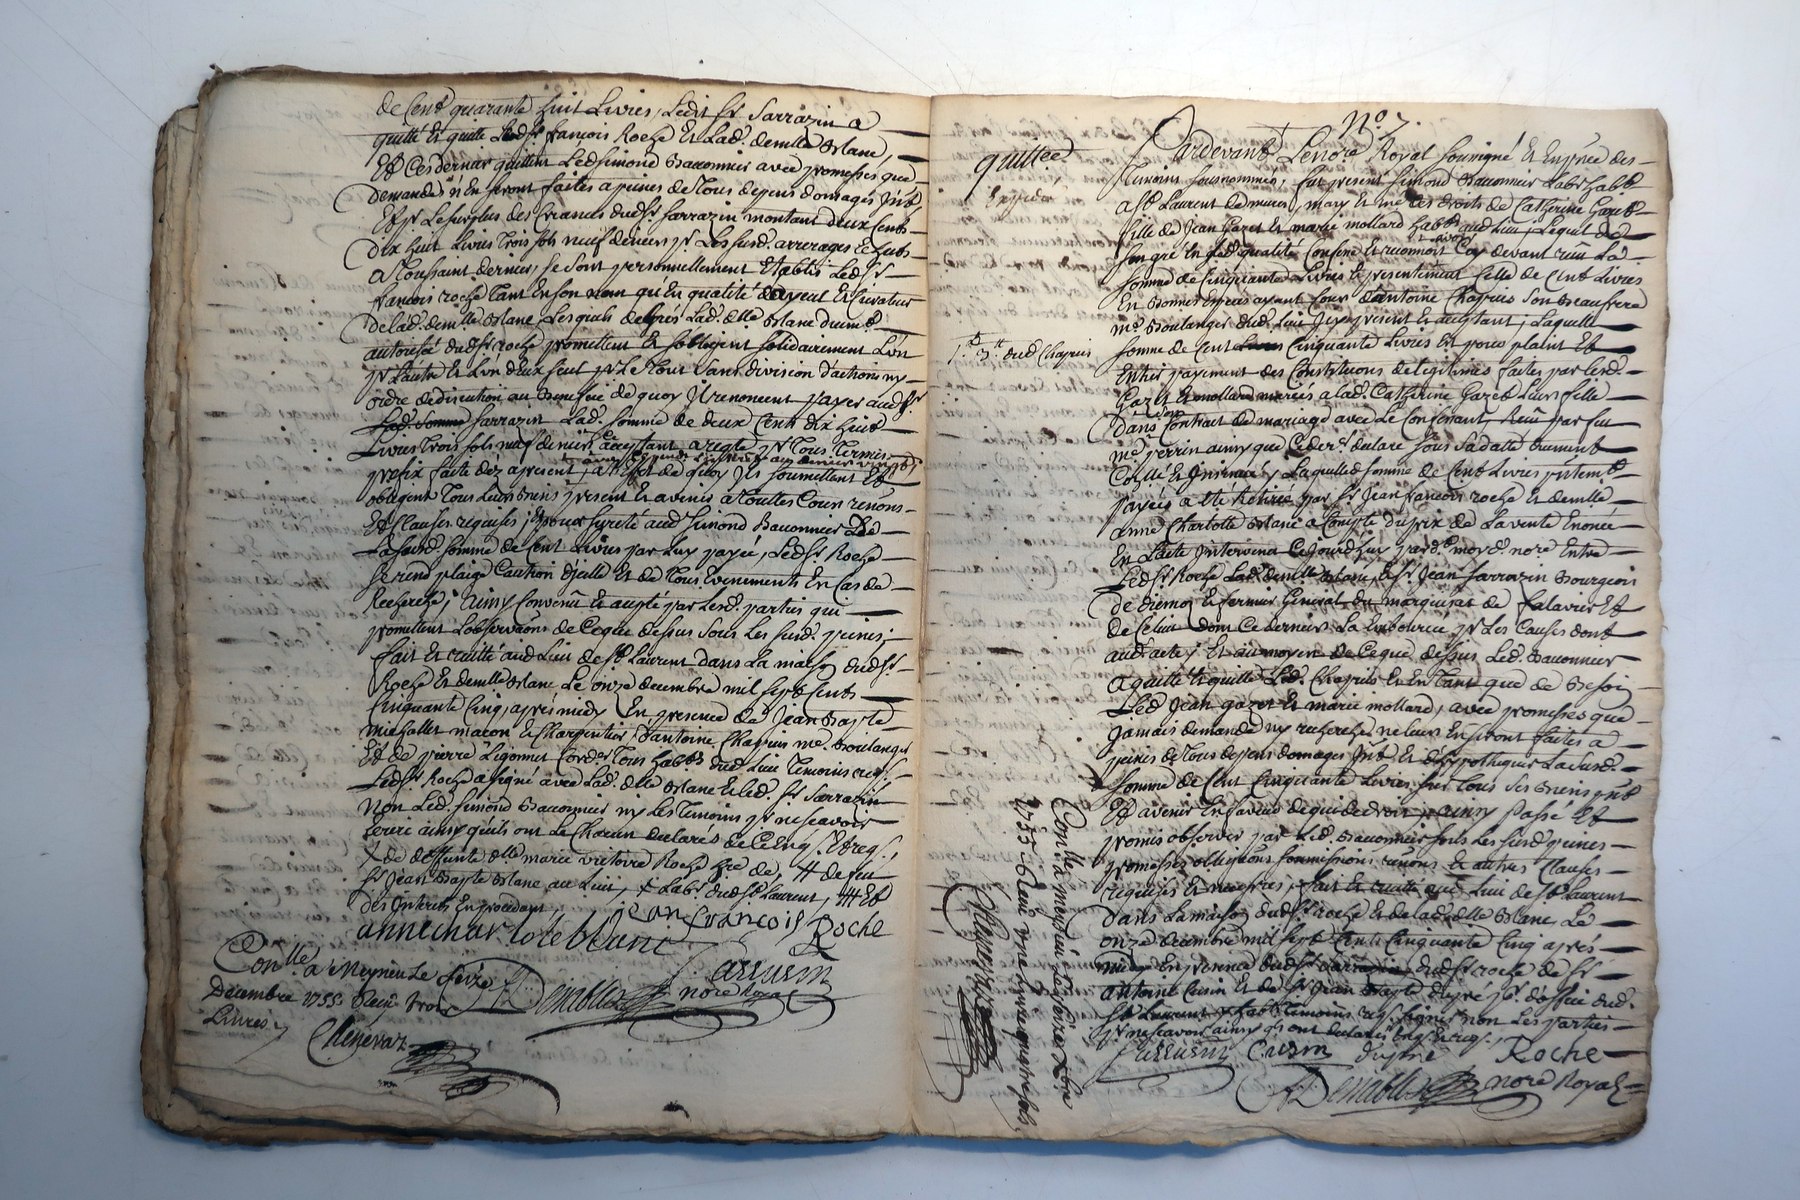 de Cent quarante huit Livres, Ledit Sr Sarrazin a
quitté Et quitte Ledsr francois Roche Et Lad. demlle Blanc,
Et Ces dernier quittent Led simond Bauonnier avec promesses que
demandes n'En seront faites a peines de Tous depens domages Intt
Et pr Le surplus des Creances dudsr Sarrazin montant deux Cents
dix huit Livres Trois sols neuf deniers pr Les susd. arrerages Echus
a Toussaint dernier, se sont personnellement Etablis Ledsr
francois roche Tant En son nom qu'En qualité dayeul Et Curateur
de lad. demlle Blanc, Lesquels Lad. dlle Blanc
autorisée dudsr roche promettent Et sobligent solidairement L'un
pr L'autre Et L'un deux seul pr Le Tout sans division d'actions ny
ordre de discution au Benefice de quoy Ils renoncent payer audsr
Sarrazin Lad. somme de deux Cents dix huit
Livres Trois sols neuf deniers
prefix faite dez apresent a L'Effet de quoy Ils soumettent Et
obligent Tous Leurs biens present Et avenir a Touttes Cours renons
Et Clauses requises; Et pour sureté aud simond Bauonnier de
La susd. somme de Cent Livres par Luy payée, Ledsr Roche
se rend plaige Caution d'jcelle Et de Tous Evenements En Cas de
Recherche; ainsy Convenû Et accepté par Lesd. parties qui
promettent L'observaons de Ceque dessus sous Les susd. peines;
fait Et recitté aud Lieu de St Laurent dans La maison dudsr
Roche Et demlle Blanc Le onze decembre mil sept Cents
Cinquante Cinq apres midy En presence de Jean Bapte
michallet macon Et Charpentier, d'antoine Chapuis me Boulanger
Et de pierre Ligonnet Cordr Tous habts dud Lieu Temoins req.
Ledsr Roche a signé avec Lad. dlle Blanc Et led. sr Sarrazin
Non Led. simond Bauonnier ny Les Temoins pr ne scavoir
Ecrire ainsy qu'ils ont Le Chacun declarés de Ce Enq. Et req.
de deffunte dlle marie victoire Roche de, # de feu
sr Jean Bapte Blanc au Lieu, x Labr dudst Laurent, ## Et
des Interets En procedant
anne charlote blanc Jean francois Roche
Sarrasin
Denables nore Royal
Conlle a Meyrieu Le seize
Decembre 1755. Reçu trois
Livres
Chenevaz
No 7.
quittce
Expedié
1.d 3.tt dud Chapuis
Pardevant Le nore Royal soussigné Et En pnce des
Temoins sousnommés, fut present simond Bauonnier Labr habt
a St Laurent de mure, mary Et me des droits de Catherine Gazet
fille de Jean Gazet Et marie mollard habts aud Lieu, Lequel de
son gré En sad. qualité Confesse Et reconnoit avoir Cy devant reçû La
somme de Cinquante Livres Et presentement Celle de Cent Livres
En Bonnes Especes ayant Cours d'antoine Chapuis son Beaufrere
me Boulanger dud. Lieu Icy present Et acceptant; Laquelle
somme de Cent Cinquante Livres Est pour plaint Et
Entier payement des Constitutions de Legitimes faites par Lesd.
Gazet Et mollard mariés a lad. Catherine Gazet Leur fille
dans son Contrat de mariage avec Le Confessant, Reçû par feu
me perrin ainsy que Ceder. declare sous sa datte duement
Collé Et Insinué; Laquelle somme de Cent Livres putemt
payée a eté Retirée par sr Jean francois roche Et demlle
anne Charlotte Blanc a Compte du prix de La vente Enoncée
En L'acte Intervenu Cejourd'huy pardt moy d. nore Entre
Ledsr Roche Lad. demlle Blanc, Et sr Jean Sarrazin Bourgeois
de diemoz Et fermier General du marquisat de falavier Et
de Celui dont Ce dernier La Embourcée pr Les Causes dont
aud. acte; Et au moyen de Ceque dessus Led. Bauonnier
a quitté Et quitte Led. Chapuis Et En Tant que de Besoin
Led Jean gazet Et marie mollard, avec promesses que
Jamais demande ny recherche ne leur En seront faites a
peines de Tous depens domages Intt Et d'hypothequer La susd.
somme de Cent Cinquante Livres sur Tous ses Biens prts
Et avenir En faveur de qui de droit; ainsy passé Et
promis observer par Led. Bauonnier sous Les susd. peines
promesses obligaons soumissions renons Et autres Clauses
requises Et necesres, fait Et recitté aud Lieu de St Laurent
dans La maison dudsr roche Et de lad. dlle Blanc, Le
onze decembre mil sept Cents Cinquante Cinq aprés
midy En presence dudsr Sarrazin, dudsr roche de sr
antoine Cusin Et de sr Jean Bapte dupré dud.
St Laurent Temoins req. signés non Les parties
pr ne scavoir ainsy qs ont declarés Enq. Et req.
Sarrasin Cusin dupré Roche
Denables nore Royal
Conlle a meyrieu Le seize Xbre
1755. Reçu une Livre quatre sols.
Chenevaz